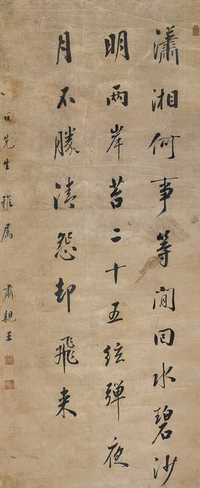 瀟湘何事等閒回水碧沙
明兩岸苔二十五弦彈夜
月不勝清怨却飛来
先生雅属
肅親王